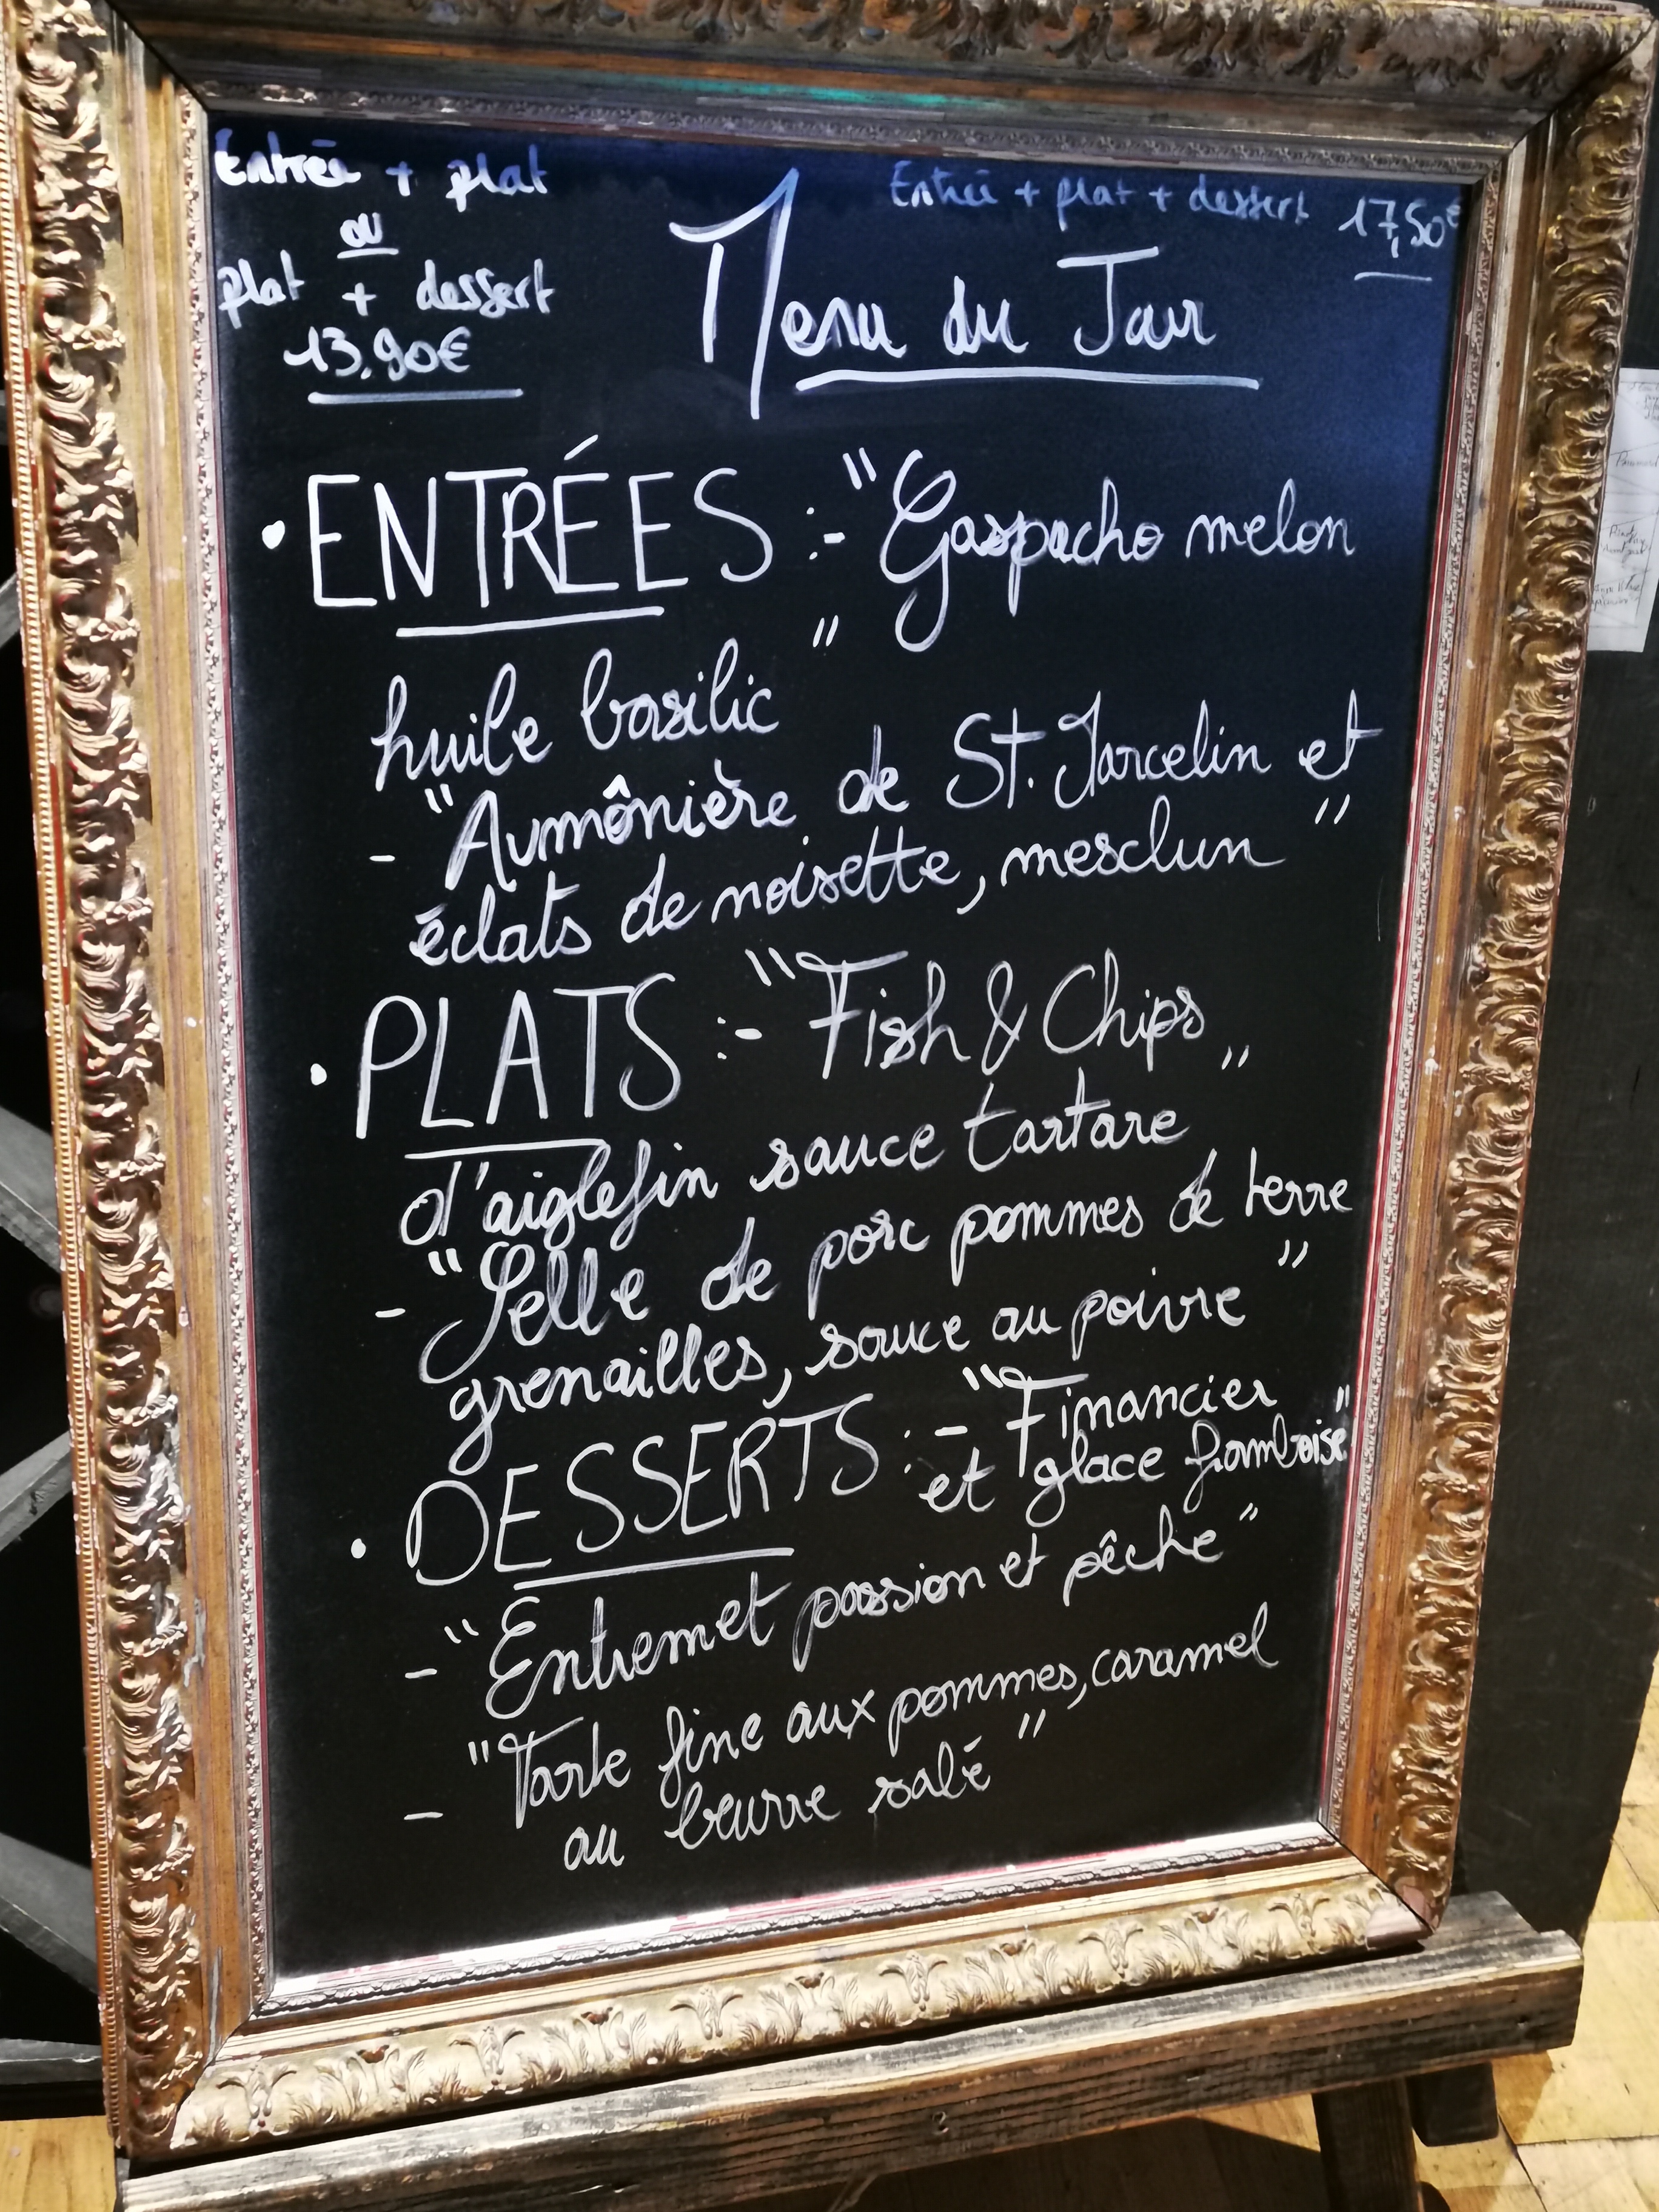 Entrée + plat
ou
plat + dessert
13,90€
Entrée + plat + dessert 17,50€
Menu du Jour
• ENTRÉES :- "Gaspacho melon
huile basilic "
- "Aumônière de St. Marcelin et
éclats de noisette, mesclun "
• PLATS :- "Fish & Chips "
d'aiglefin sauce tartare
- "Selle de porc pommes de terre
grenailles, sauce au poivre "
• DESSERTS :- "Financier
et glace framboise"
- "Entremet passion et pêche "
- "Tarte fine aux pommes, caramel
au beurre salé "